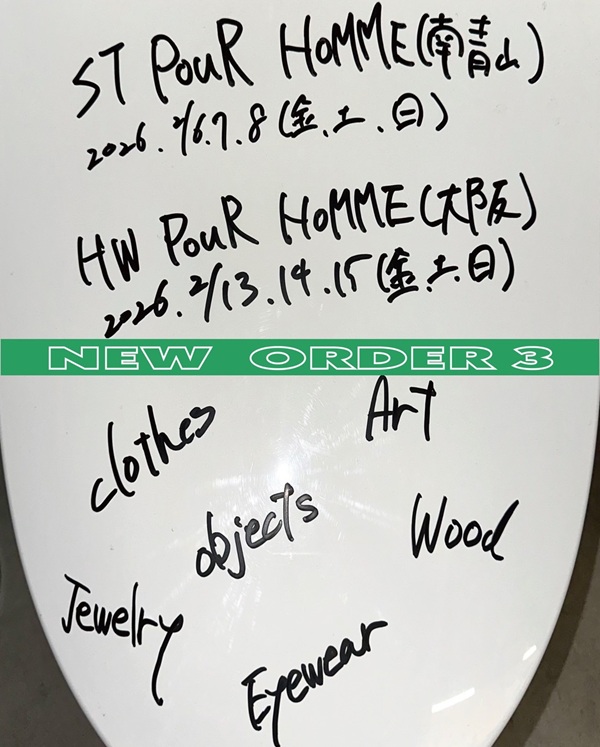 ST POUR HOMME(南青山)
2026.2/6.7.8(金.土.日)
HW POUR HOMME(大阪)
2026.2/13.14.15(金.土.日)
NEW ORDER 3
Art
clothes
objects
Wood
Jewelry
Eyewear